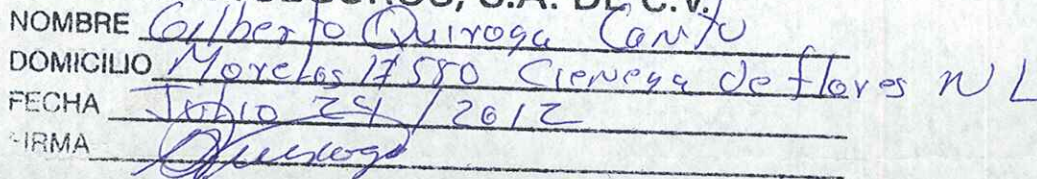 S.A. DE C.V.
NOMBRE Gilberto Quiroga Cantu
DOMICILIO Morelos # 580 Cienega de flores N L
FECHA Julio 24 / 2012
FIRMA Quiroga